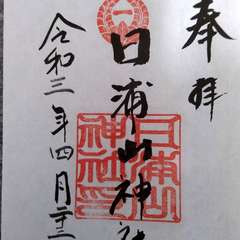 奉拝
日浦山神社
日浦山
神社印
令和三年四月